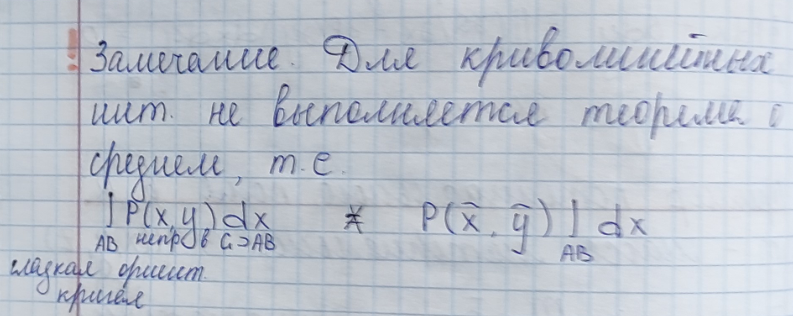 ! Замечание. Для криволинейных
инт. не выполняется теорема о
среднем, т.е.
∫ P(x,y) dx ≠ P(x̄, ȳ) ∫ dx
AB непр в G⊃AB AB
гладкая ориент.
кривая